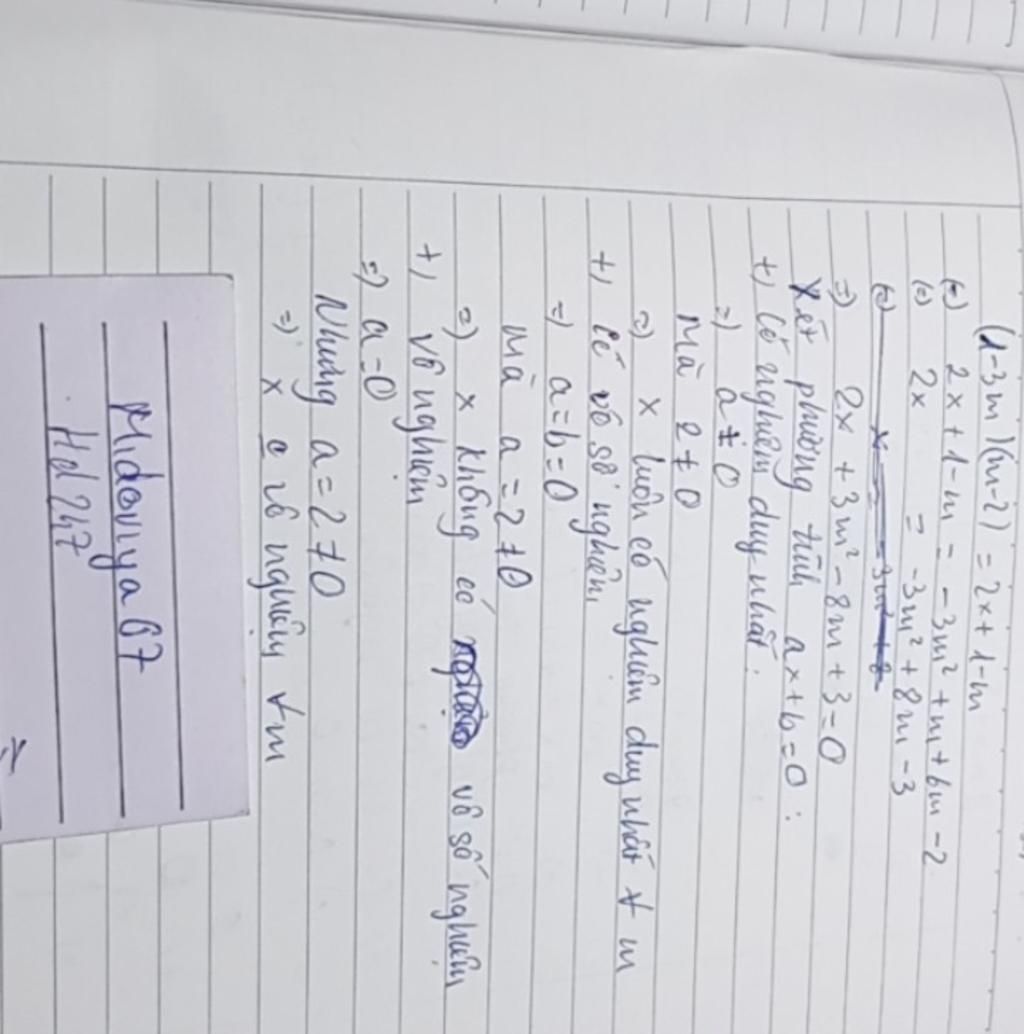 (1-3m)(m-2) = 2x+1-m
(=) 2x+1-m = -3m² + m + 6m - 2
(=) 2x = -3m² + 8m - 3
=) 2x + 3m² - 8m + 3 = 0
Xét phương tình ax+b=0 :
+, Có nghiệm duy nhất :
=) a ≠ 0
Mà 2 ≠ 0
=) x luôn có nghiệm duy nhất ∀ m
+, Có vô số nghiệm,
=) a=b=0
Mà a=2≠0
=) x không có vô số nghiệm
+, vô nghiệm
=) a=0
Nhưng a=2≠0
=) x vô nghiệm ∀m
Midoviya67
Hd247